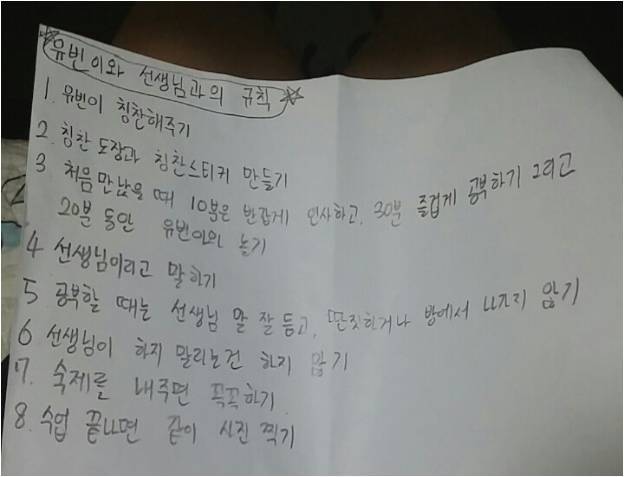 유빈이와 선생님과의 규칙
1. 유빈이 칭찬해주기
2. 칭찬 도장과 칭찬스티커 만들기
3 처음 만났을 때 10분은 반갑게 인사하고, 30분 즐겁게 공부하기 그리고
20분 동안 유빈이와 놀기
4 선생님이라고 말하기
5 공부할 때는 선생님 말 잘 듣고, 딴짓하거나 방에서 나가지 않기
6 선생님이 하지 말라는건 하지 않기
7. 숙제를 내주면 꼭꼭하기
8. 수업 끝나면 같이 사진 찍기